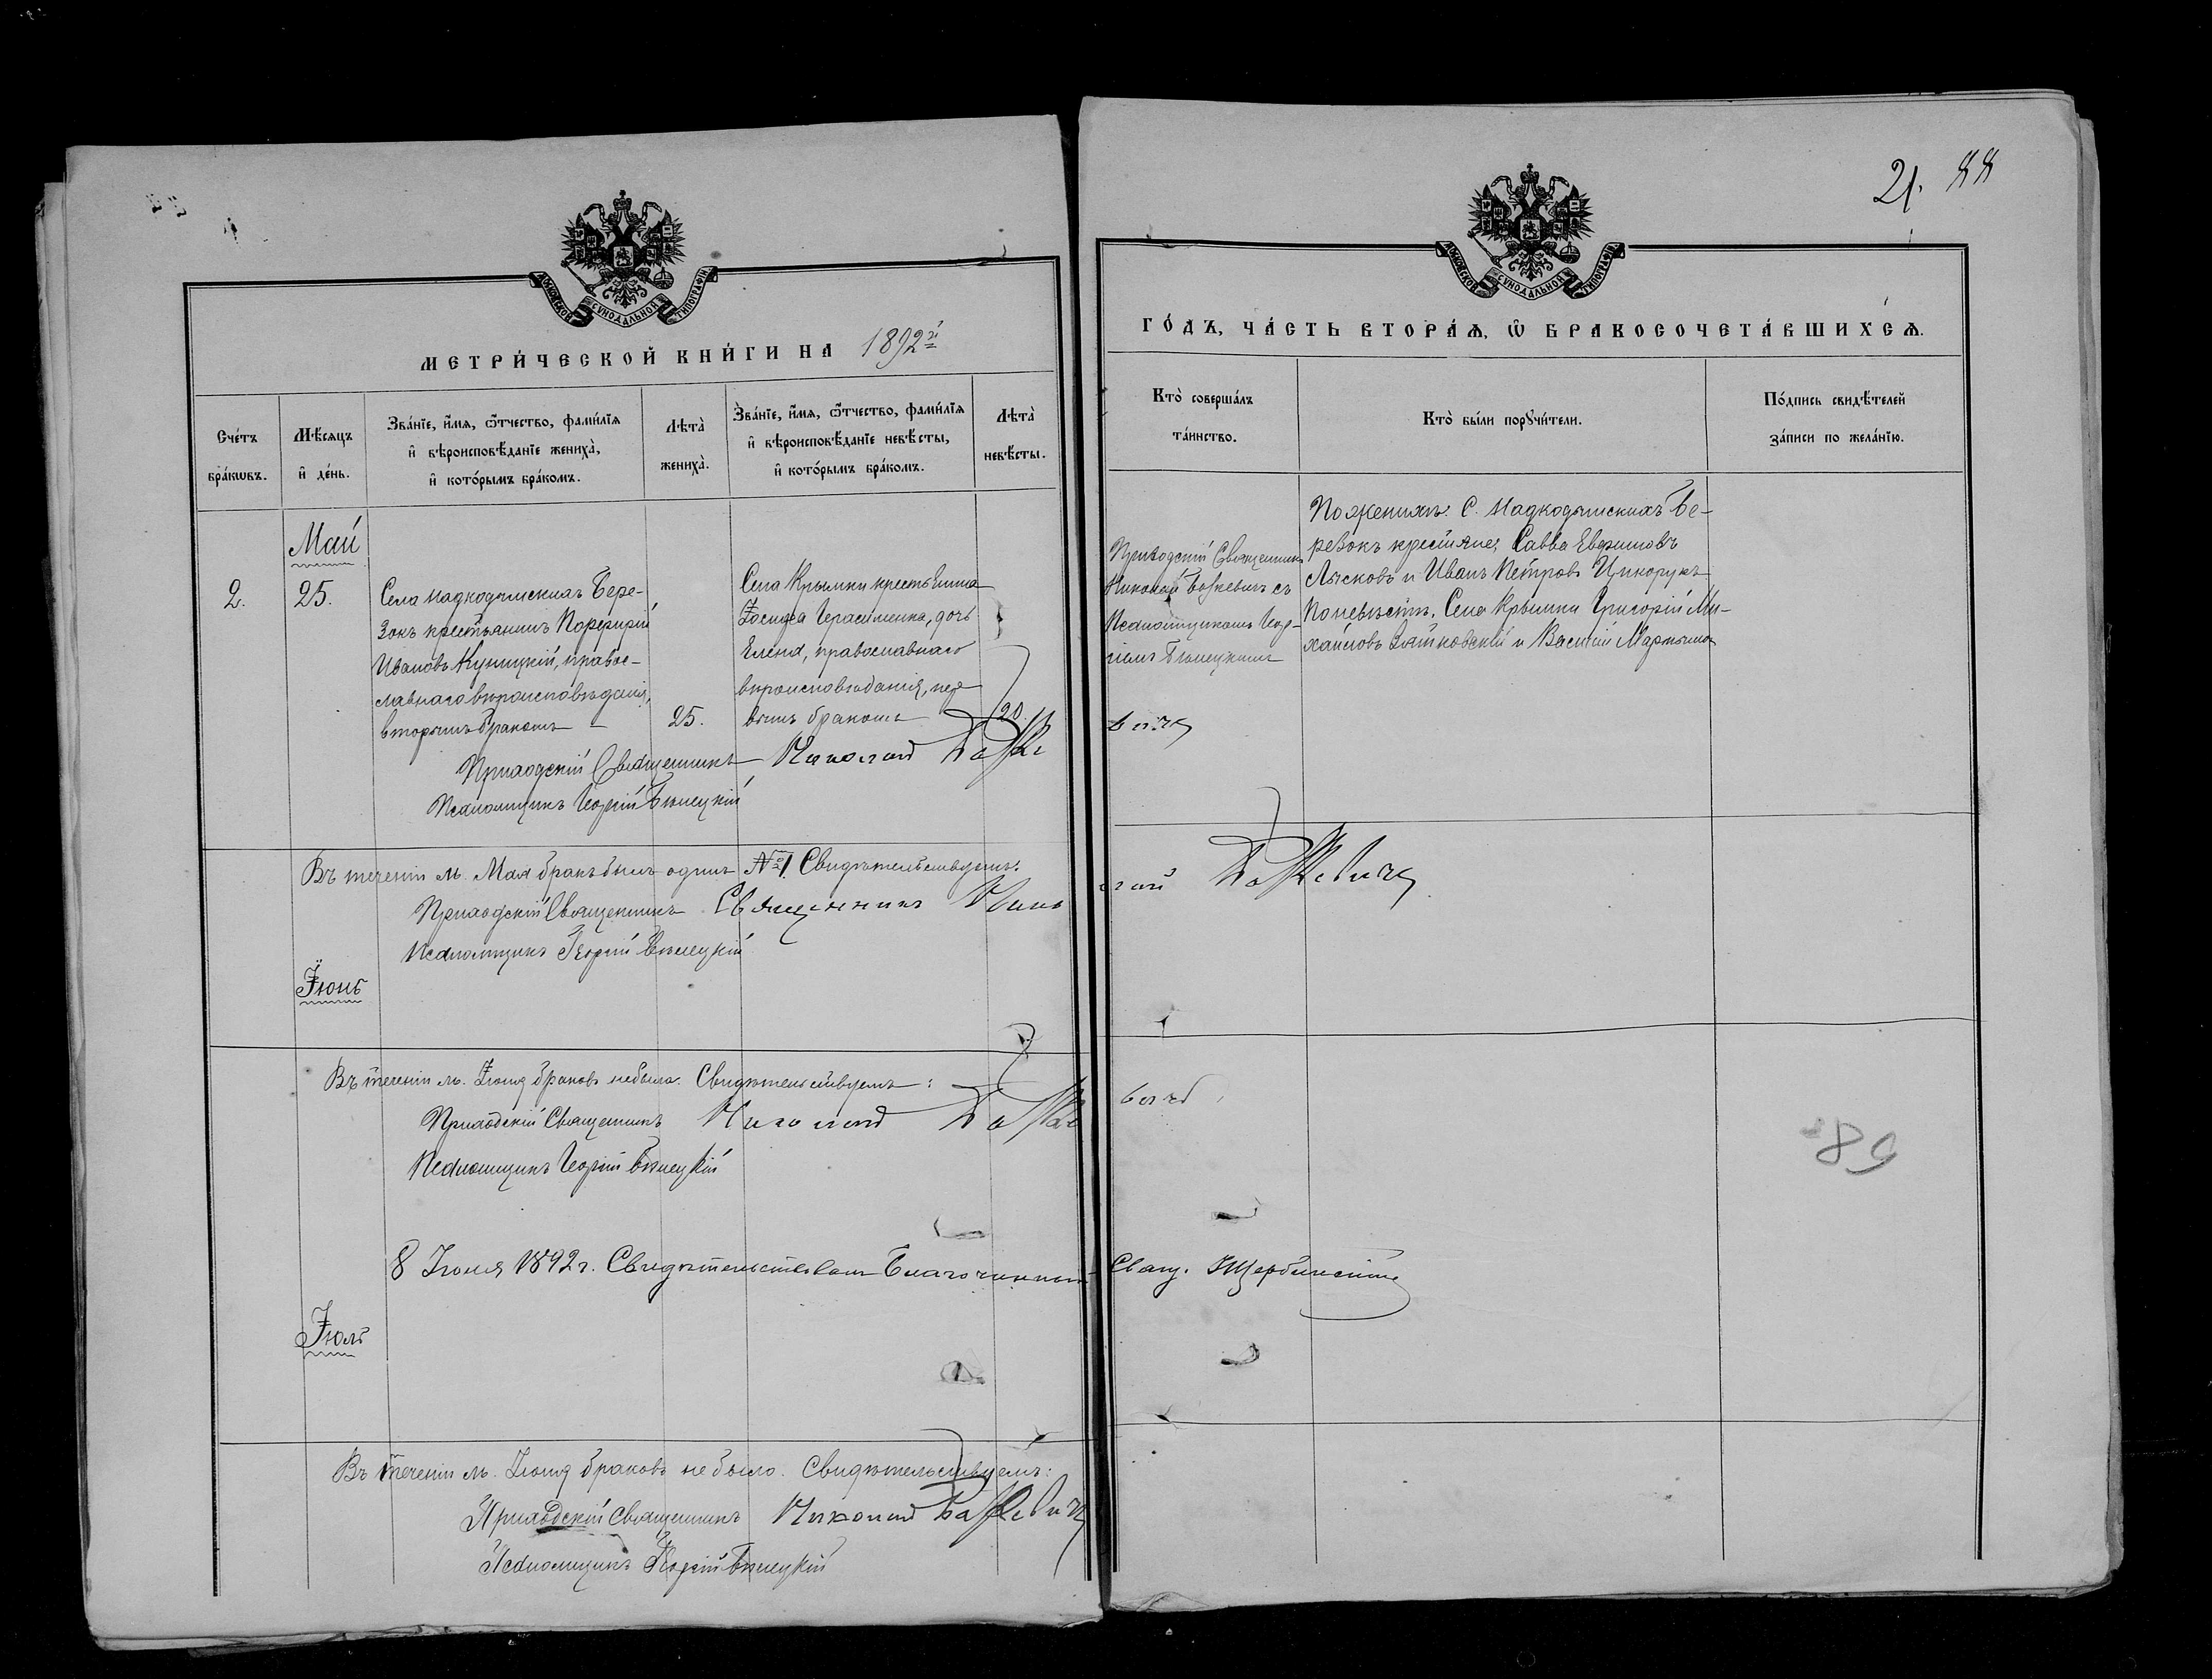 21.
МОСКОВСКОЙ СУНОДАЛЬНОЙ ТИПОГРАФІИ
МЕТРИ́ЧЕСКОЙ КНИ́ГИ НА 1892й
Сче́тъ бра́кѡвъ.
Мѣ́сяцъ и҆ де́нь.
Зва́нїе, и҆́мѧ, ѻ҆́тчество, фами́лїѧ
и҆ вѣроисповѣ́данїе жениха̀,
и҆ кото́рымъ бра́комъ.
Лѣта̀ жениха̀.
Зва́нїе, и҆́мѧ, ѻ҆́тчество, фами́лїѧ
и҆ вѣроисповѣ́данїе невѣ́сты,
и҆ кото́рымъ бра́комъ.
Лѣта̀ невѣ́сты.
Май
2.
25.
Села Надкодымскихъ Бере-
зокъ крестьянинъ Порфирій
Ивановъ Куницкій, правос-
лавнаго вѣроисповѣданія,
вторымъ бракомъ –
25.
Села Крымки крестьянина
Герасименка, дочь
Елена, православнаго
вѣроисповѣданія, пер
вымъ бракомъ
20.
Приходскій Священникъ Николай
Псаломщикъ Георгій Бѣлецкій
Въ теченіи м. Мая бракъ былъ одинъ №1. Свидѣтельствуемъ:
Приходскій Священникъ Священникъ Нико
Псаломщикъ Георгій Бѣлецкій
Іюнь
Въ теченіи м. Іюня браковъ небыло. Свидѣтельствуемъ:
Приходскій Священникъ Николай
Псаломщикъ Георгій Бѣлецкій
8 Іюля 1892 г. Свидѣтельствовалъ Благочинный
Іюль
Въ теченіи м. Іюля браковъ не было. Свидѣтельствуемъ:
Приходскій Священникъ Николай
Псаломщикъ Георгій Бѣлецкій
МОСКОВСКОЙ СУНОДАЛЬНОЙ ТИПОГРАФІИ
ГО́ДЪ, ЧА́СТЬ ВТОРА́Ѧ, Ѡ҆ БРАКОСОЧЕТА́ВШИХСѦ.
Кто̀ соверша́лъ та́инство.
Кто̀ бы́ли порꙋчи́тели.
По́дпись свидѣ́телей за́писи по жела́нїю.
Приходскій Священникъ
Николай съ
Псаломщикомъ Геор-
гіемъ Бѣлецкимъ
По женихѣ: С. Надкодымскихъ Бе-
резокъ крестьяне, Савва
и Иванъ Петровъ
По невѣстѣ, Села Крымки Григорій Ми-
хайловъ и Василій
Свящ. Щербинскій
89